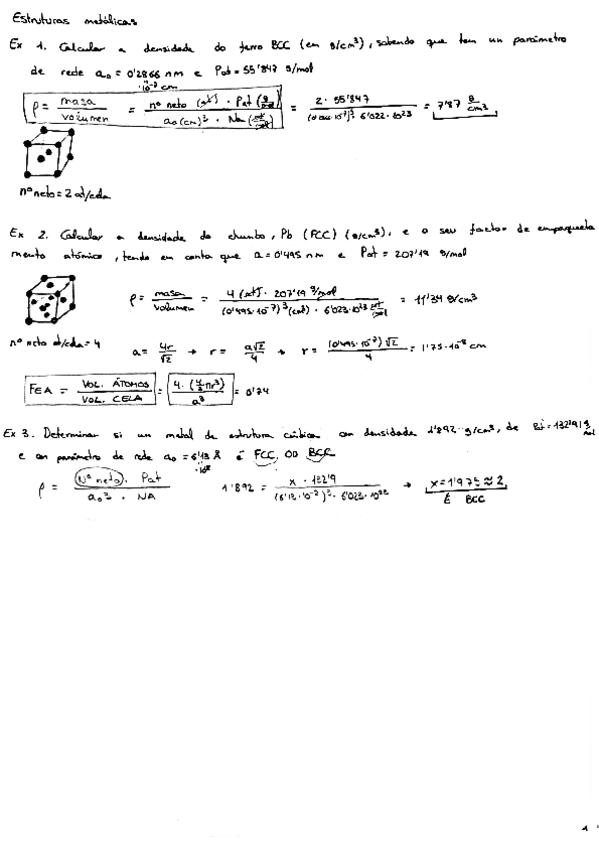 Estruturas metálicas
Ex 1. Calcular a densidade do ferro BCC (em g/cm³), sabendo que tem un parámetro
de rede a₀ = 0'2866 nm e Pat = 55'847 g/mol
·10⁻⁷ cm
ρ = masa / volumen = nº neto (at) · Pat (g/mol) / a₀(cm)³ · Na (at/mol) = 2 · 55'847 / (0'2866·10⁻⁷)³ · 6'022·10²³ = 7'87 g/cm³
nº neto = 2 at/celda
Ex 2. Calcular a densidade do chumbo, Pb (FCC) (g/cm³), e o seu factor de empaqueta
mento atómico, tendo en conta que a = 0'495 nm e Pat = 207'19 g/mol
ρ = masa / volumen = 4 (at) · 207'19 g/mol / (0'495·10⁻⁷)³(cm³) · 6'023·10²³ at/mol = 11'34 g/cm³
nº neto at/celda = 4
a = 4r/√2 → r = a√2/4 → r = (0'495·10⁻⁷)√2 / 4 = 1'75·10⁻⁸ cm
FEA = VOL. ÁTOMOS / VOL. CELA = 4 · (4/3 πr³) / a³ = 0'74
Ex 3. Determinar si un metal de estrutura cúbica con densidade 1'892 g/cm³, de Pat = 132'91 g/mol
e con parámetro de rede a₀ = 6'13 Å é FCC OU BCC
·10⁻⁸
ρ = (Nº neto) · Pat / a₀³ · NA 1'892 = x · 132'9 / (6'13·10⁻⁸)³ · 6'023·10²³ → x = 1'975 ≈ 2
É BCC
1